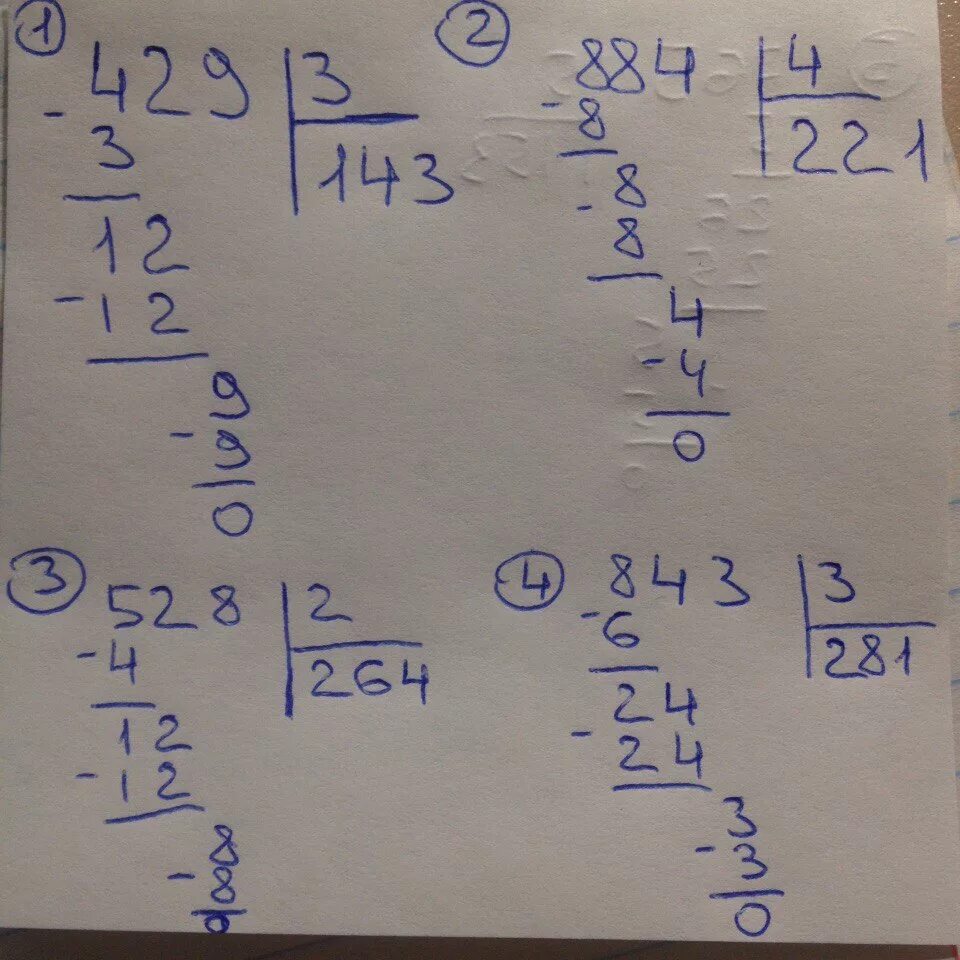 1
429 3
- 3 143
12
- 12
9
- 9
0
2
884 4
- 8 221
8
- 8
4
- 4
0
3
528 2
- 4 264
12
- 12
8
- 8
0
4
843 3
- 6 281
24
- 24
3
- 3
0